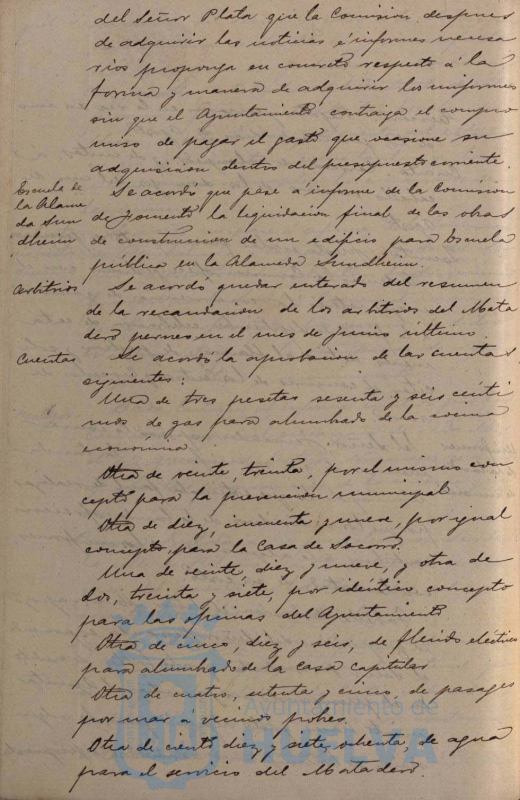 del Señor Plata que la Comision, despues
de adquirir las noticias é informes necesa
rios proponga en concreto respecto á la
forma y manera de adquirir los uniformes
sin que el Ayuntamiento contraiga el compro
miso de pagar el gasto que ocasione su
adquisicion dentro del presupuesto corriente.
Escuela de
la Alame
da Sun
dheim
Se acordó que pase á informe de la Comision
de Fomento la liquidacion final de las obras
de construccion de un edificio para Escuela
pública en la Alameda Sundheim.
Arbitrios
Se acordó quedar enterado del resumen
de la recaudacion de los arbitrios del Mata
dero
en el mes de Junio ultimo.
Cuentas
Se acordó la aprobacion de las cuentas
siguientes:
Una de tres pesetas sesenta y seis cénti
mos de gas para alumbrado de la cocina
económica.
Otra de veinte, treinta, por el mismo con
cepto para la prevencion municipal
Otra de diez, cincuenta y nueve, por igual
concepto, para la Casa de Socorro.
Una de veinte, diez y nueve, y otra de
dos, treinta y siete, por idéntico concepto
para las oficinas del Ayuntamiento
Otra de cinco, diez y seis, de fluido eléctrico
para alumbrado de la Casa capitular
Otra de cuatro, setenta y cinco, de pasages
por mar a vecinos pobres.
Otra de ciento diez y siete, ochenta, de agua
para el servicio del Matadero.
Ayuntamiento de
HUELVA